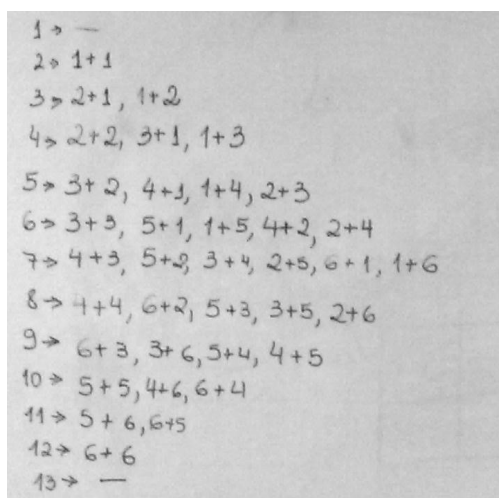 1 → —
2 → 1+1
3 → 2+1, 1+2
4 → 2+2, 3+1, 1+3
5 → 3+2, 4+1, 1+4, 2+3
6 → 3+3, 5+1, 1+5, 4+2, 2+4
7 → 4+3, 5+2, 3+4, 2+5, 6+1, 1+6
8 → 4+4, 6+2, 5+3, 3+5, 2+6
9 → 6+3, 3+6, 5+4, 4+5
10 → 5+5, 4+6, 6+4
11 → 5+6, 6+5
12 → 6+6
13 → —